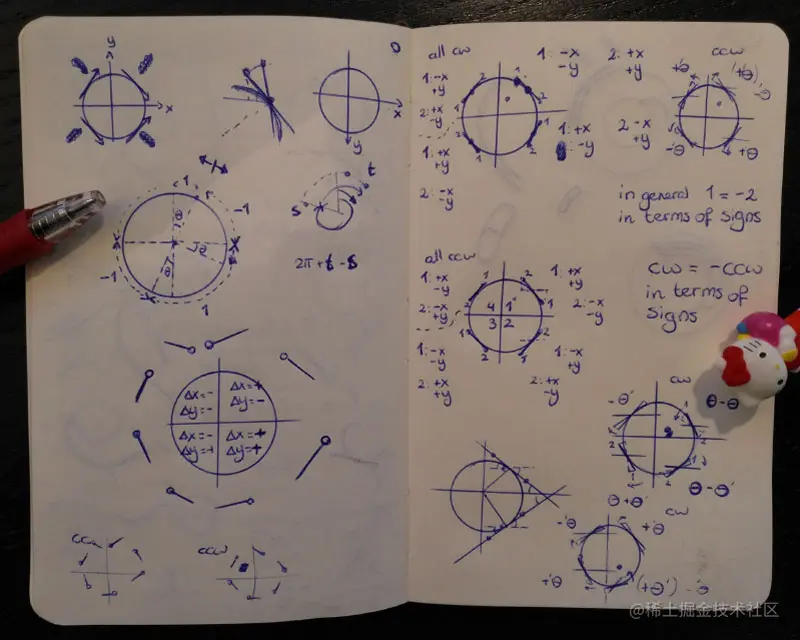 y
x
0
x
y
1
-1
θ
-1
1
s
t
2π + t - s
Δx = -
Δy = -
Δx = +
Δy = -
Δx = -
Δy = +
Δx = +
Δy = +
ccw
ccw
all cw
1: -x
-y
2: +x
+y
ccw
1: -x
+y
2: +x
-y
1: +x
-y
2 -x
+y
1: +x
+y
2: -x
-y
+θ'
(+θ')
-θ'
-θ
+θ
in general 1 = -2
in terms of signs
all ccw
1: +x
-y
1: +x
+y
2: -x
+y
2: -x
-y
1: -x
-y
1: -x
+y
2: +x
+y
2: +x
-y
4 1
3 2
cw = -ccw
in terms of
signs
cw
-θ'
θ - θ'
θ + θ'
θ - θ'
cw
-θ'
+θ'
+θ'
(+θ') - θ'
@稀土掘金技术社区